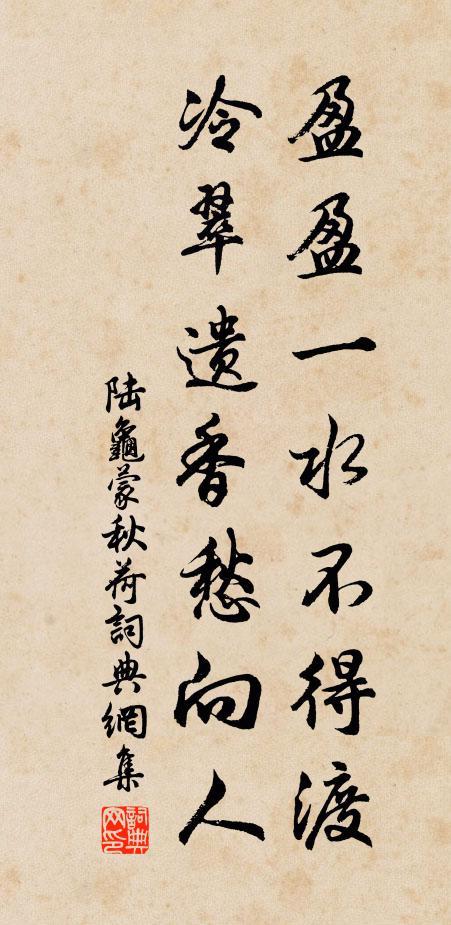 盈盈一水不得渡
冷翠遗香愁向人
陆龜蒙秋荷詞典網集
詞典網印